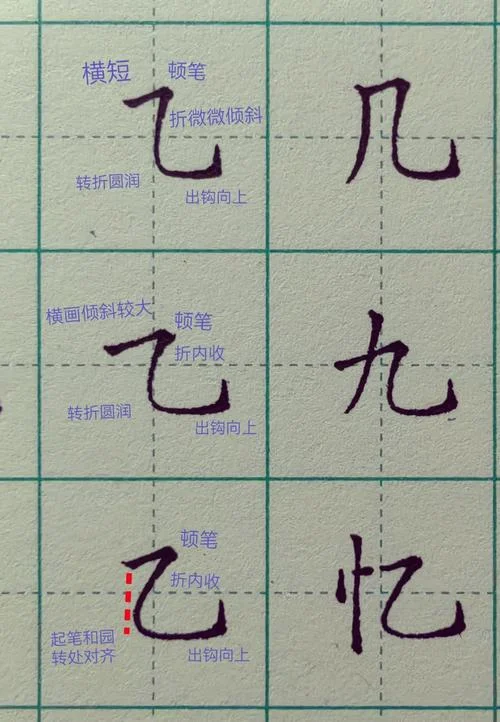 横短 顿笔
折微微倾斜
转折圆润
出钩向上
几
横画倾斜较大
顿笔
折内收
转折圆润
出钩向上
九
顿笔
折内收
起笔和园
转处对齐
出钩向上
忆